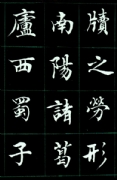 牘之勞形
南陽諸葛
廬西蜀子